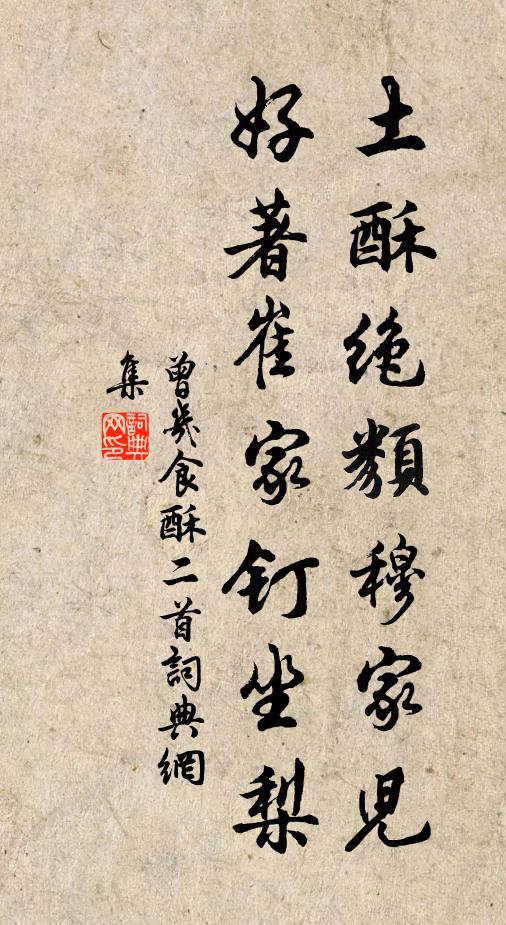 土酥絶類穆家児
好著崔家釘坐梨
曾幾食酥二首詞典網
集
詞典网印